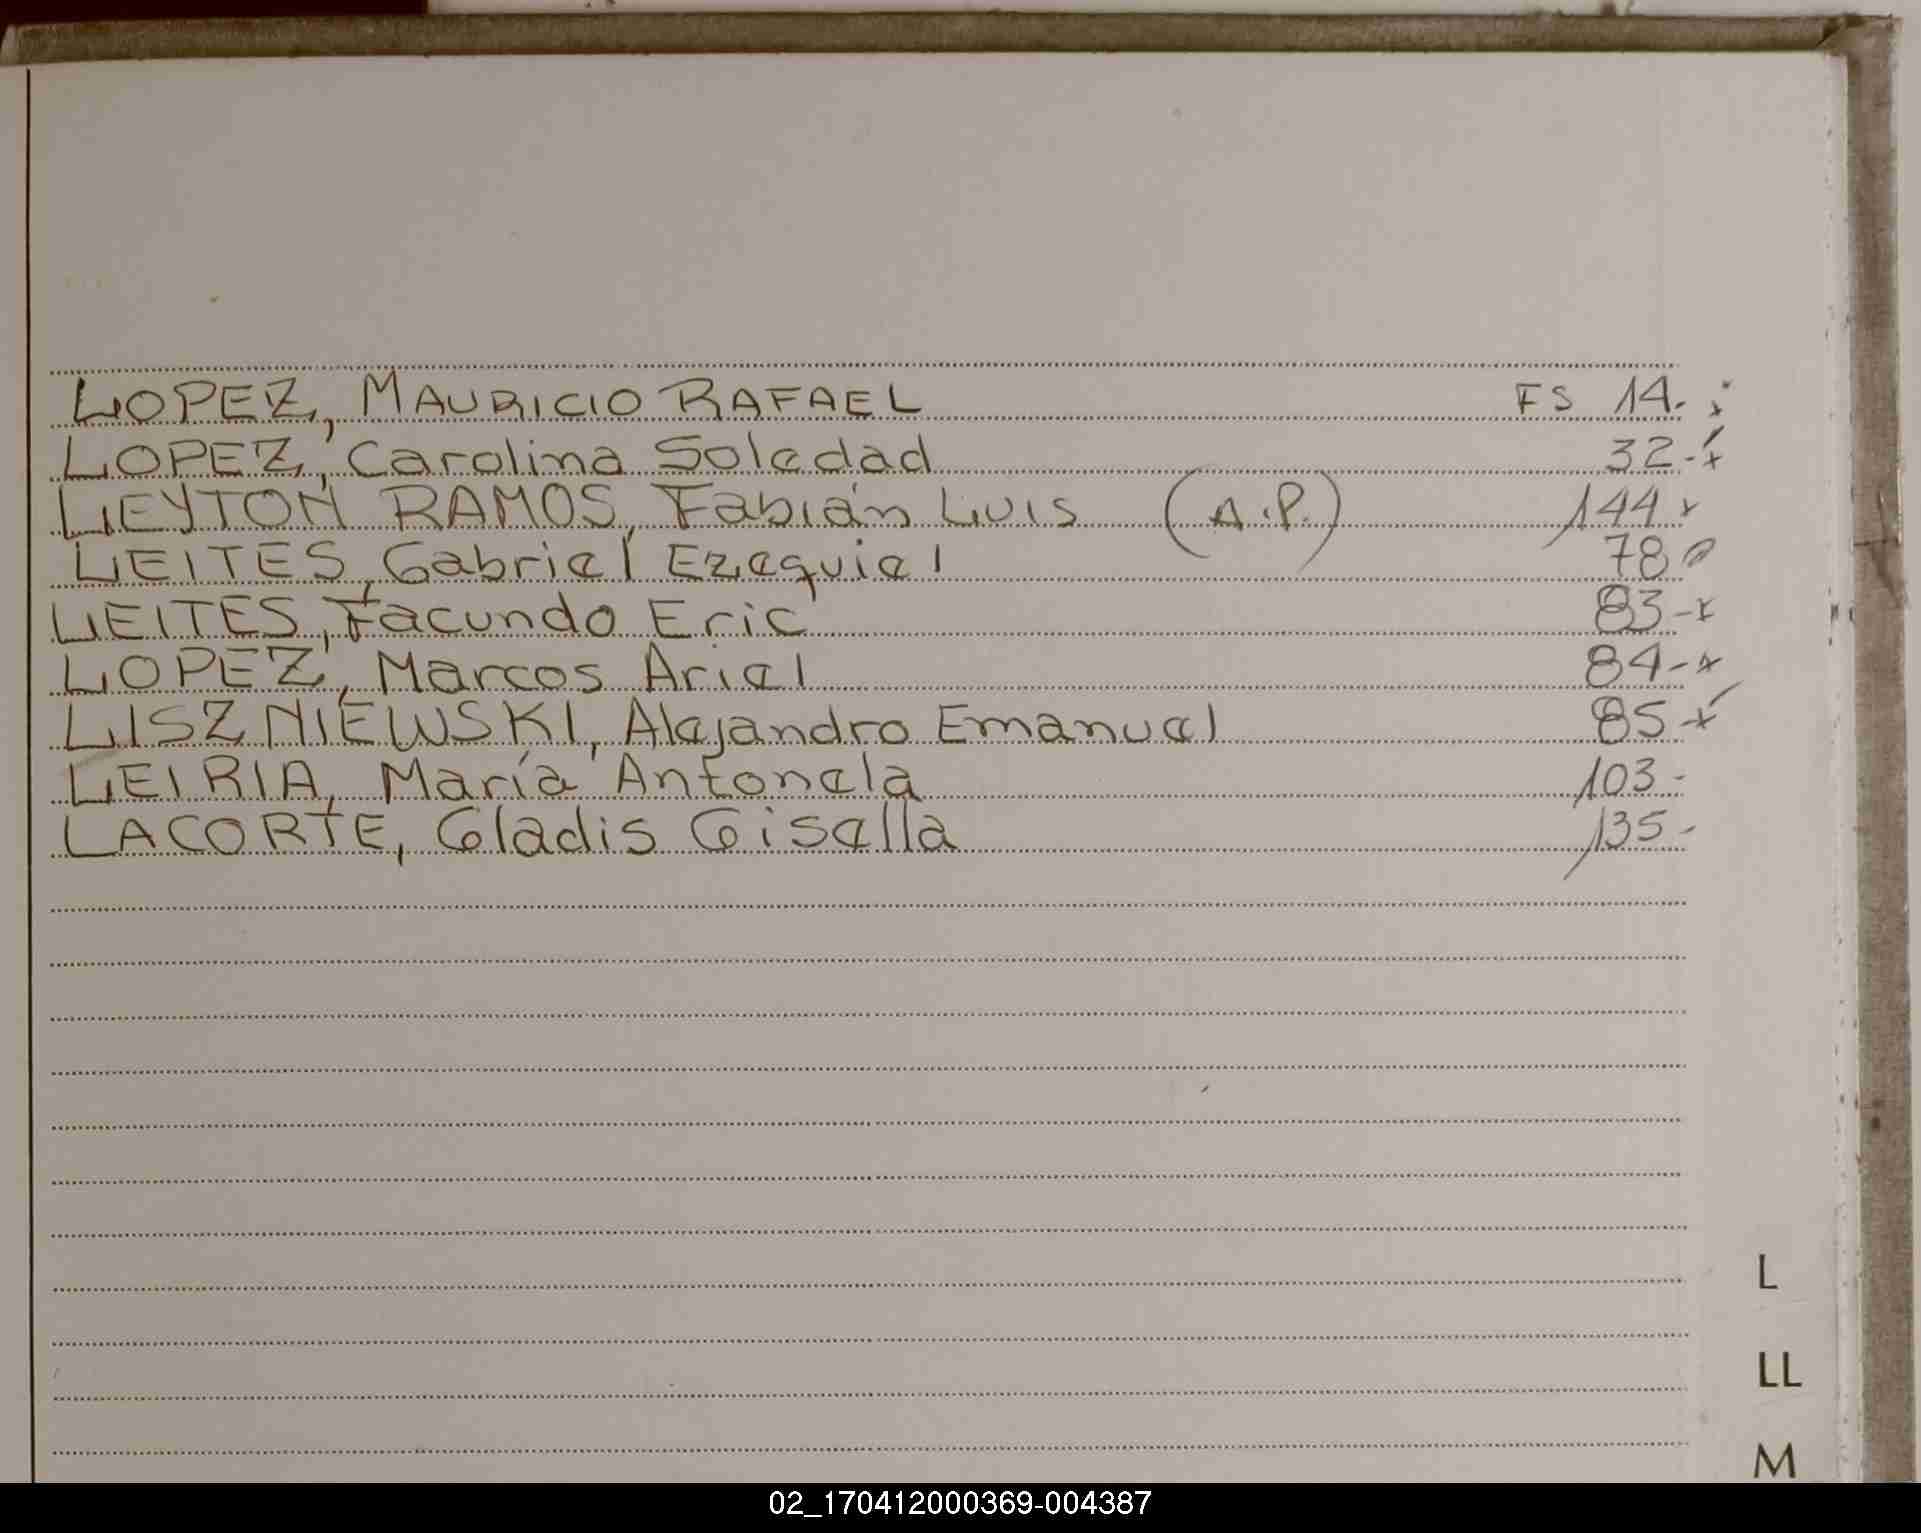 LOPEZ, MAURICIO RAFAEL FS 14.
LOPEZ, Carolina Soledad 32-x
LEYTON RAMOS, Fabián Luis (A.P.) 144 x
LEITES, Gabriel Ezequiel 78
LEITES, Facundo Eric 83-x
LOPEZ, Marcos Ariel 84-x
LISZNIEWSKI, Alejandro Emanuel 85-x
LEIRIA, María Antonela 103-
LACORTE, Gladis Gisella 135-
L
LL
M
02_170412000369-004387